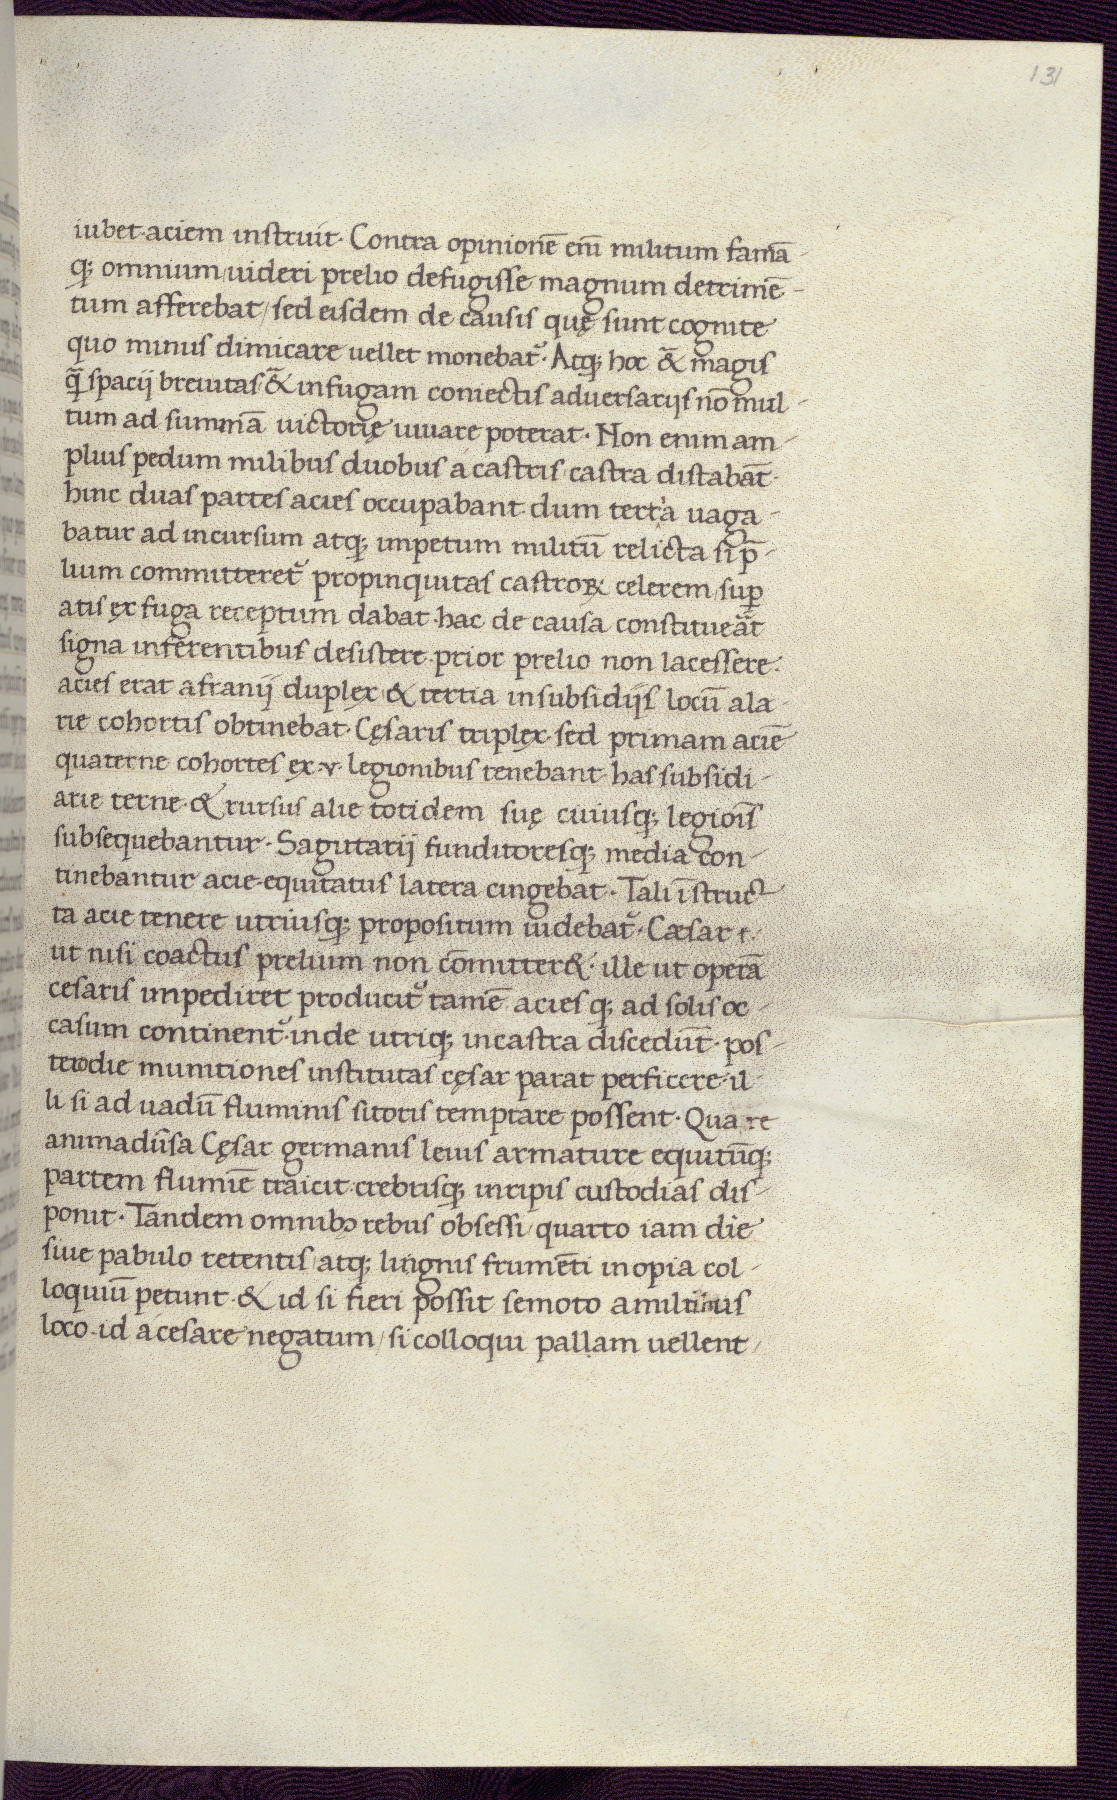 131
iubet·aciem instruit· Contra opinionē em̄ militum famā-
q; omnium/uideri prelio defugisse magnum detrimē-
tum afferebat/sed eisdem de causis quę sunt cognite
quo minus dimicare uellet monebat᷑· Atq; hoc &̄ magis
q̄ spacij breuitas/&̄ in fugam coniectis aduersarijs nō mul-
tum ad summā uictorię iuuare poterat· Non enim am-
plius pedum milibus duobus á castris castra distabāt·
hinc duas partes acies occupabant dum tertia uaga-
batur ad incursum atq; impetum militū relicta si p̄-
lium committeret᷑ propinquitas castroꝝ celerem/suꝑ
atis ex fuga receptum dabat·hac de causa constitueāt
signa inferentibus desistere·prior prelio non lacessere·
acies erat afranij duplex/& tertia in subsidijs locū ala-
rie cohortis obtinebat· Cęsaris triplex·sed primam aciē
quaterne cohortes ex·v·legionibus tenebant·has subsidi-
arie terne·& rursus alie totidem suę cuiusq; legiōis
subsequebantur· Sagittarij funditoresq; media con-
tinebantur acie·equitatus latera cingebat· Tali īstruc-
ta acie tenere utriusq; propositum uidebat᷑· Cæsar
ut nisi coactus prelium non cōmitter&· ille ut operā
cesaris impediret producit᷑ tamē acies q; ad solis oc-
casum continent᷑·inde utriq; in castra discedūt· pos-
terodie munitiones institutas cęsar parat perficere·il-
li si ad uadū fluminis sitoris temptare possent· Qua re
animadūsa Cęsar germanis leuis armature equitūq;
partem flumīe traicit·crebrisq; in ripis custodias dis-
ponit· Tandem omnibꝫ rebus obsessi quarto iam die
siue pabulo retentis/atq; lingnis frumēti inopia col-
loquiū petunt·& id si fieri possit semoto a militibus
loco·id a cesare negatum/si colloqui pallam uellent-